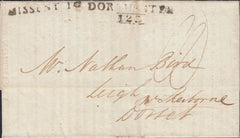 MISSENT TO DORCHESTER
123
Mr. Nathan Bird
Leigh
Nr Sherborne
Dorset